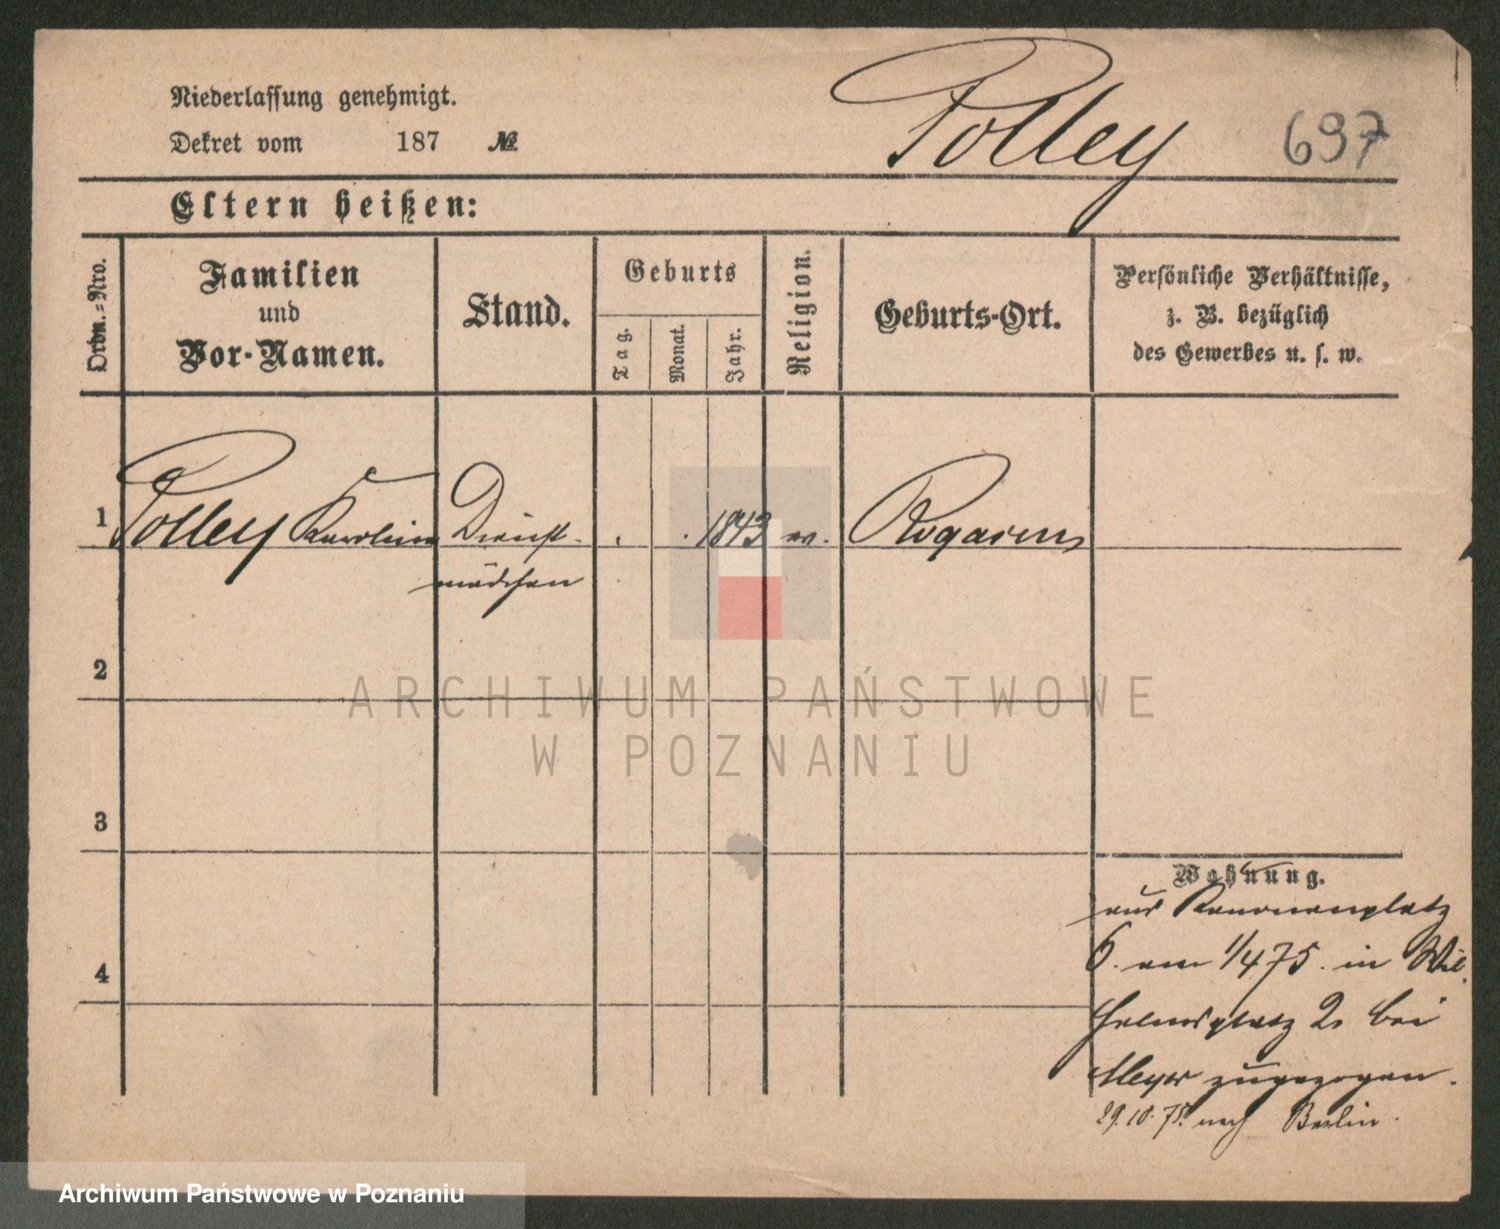 Niederlassung genehmigt.
Dekret vom 187 №
Polley
697
Eltern heißen:
Ordn.-Nro.
Familien
und
Vor-Namen.
Stand.
Geburts
Tag.
Monat.
Jahr.
Religion.
Geburts-Ort.
Persönliche Verhältnisse,
z. B. bezüglich
des Gewerbes u. s. w.
1 Polley Karoline Dienst- . . 1843
mädchen
2
ARCHIWUM PAŃSTWOWE
W POZNANIU
3
4
Wohnung.
aus Kanonenplatz
6. am 1/4 75. in Wil
helmsplatz 2. bei
Meyer zugezogen.
29.10.75. nach Berlin.
Archiwum Państwowe w Poznaniu